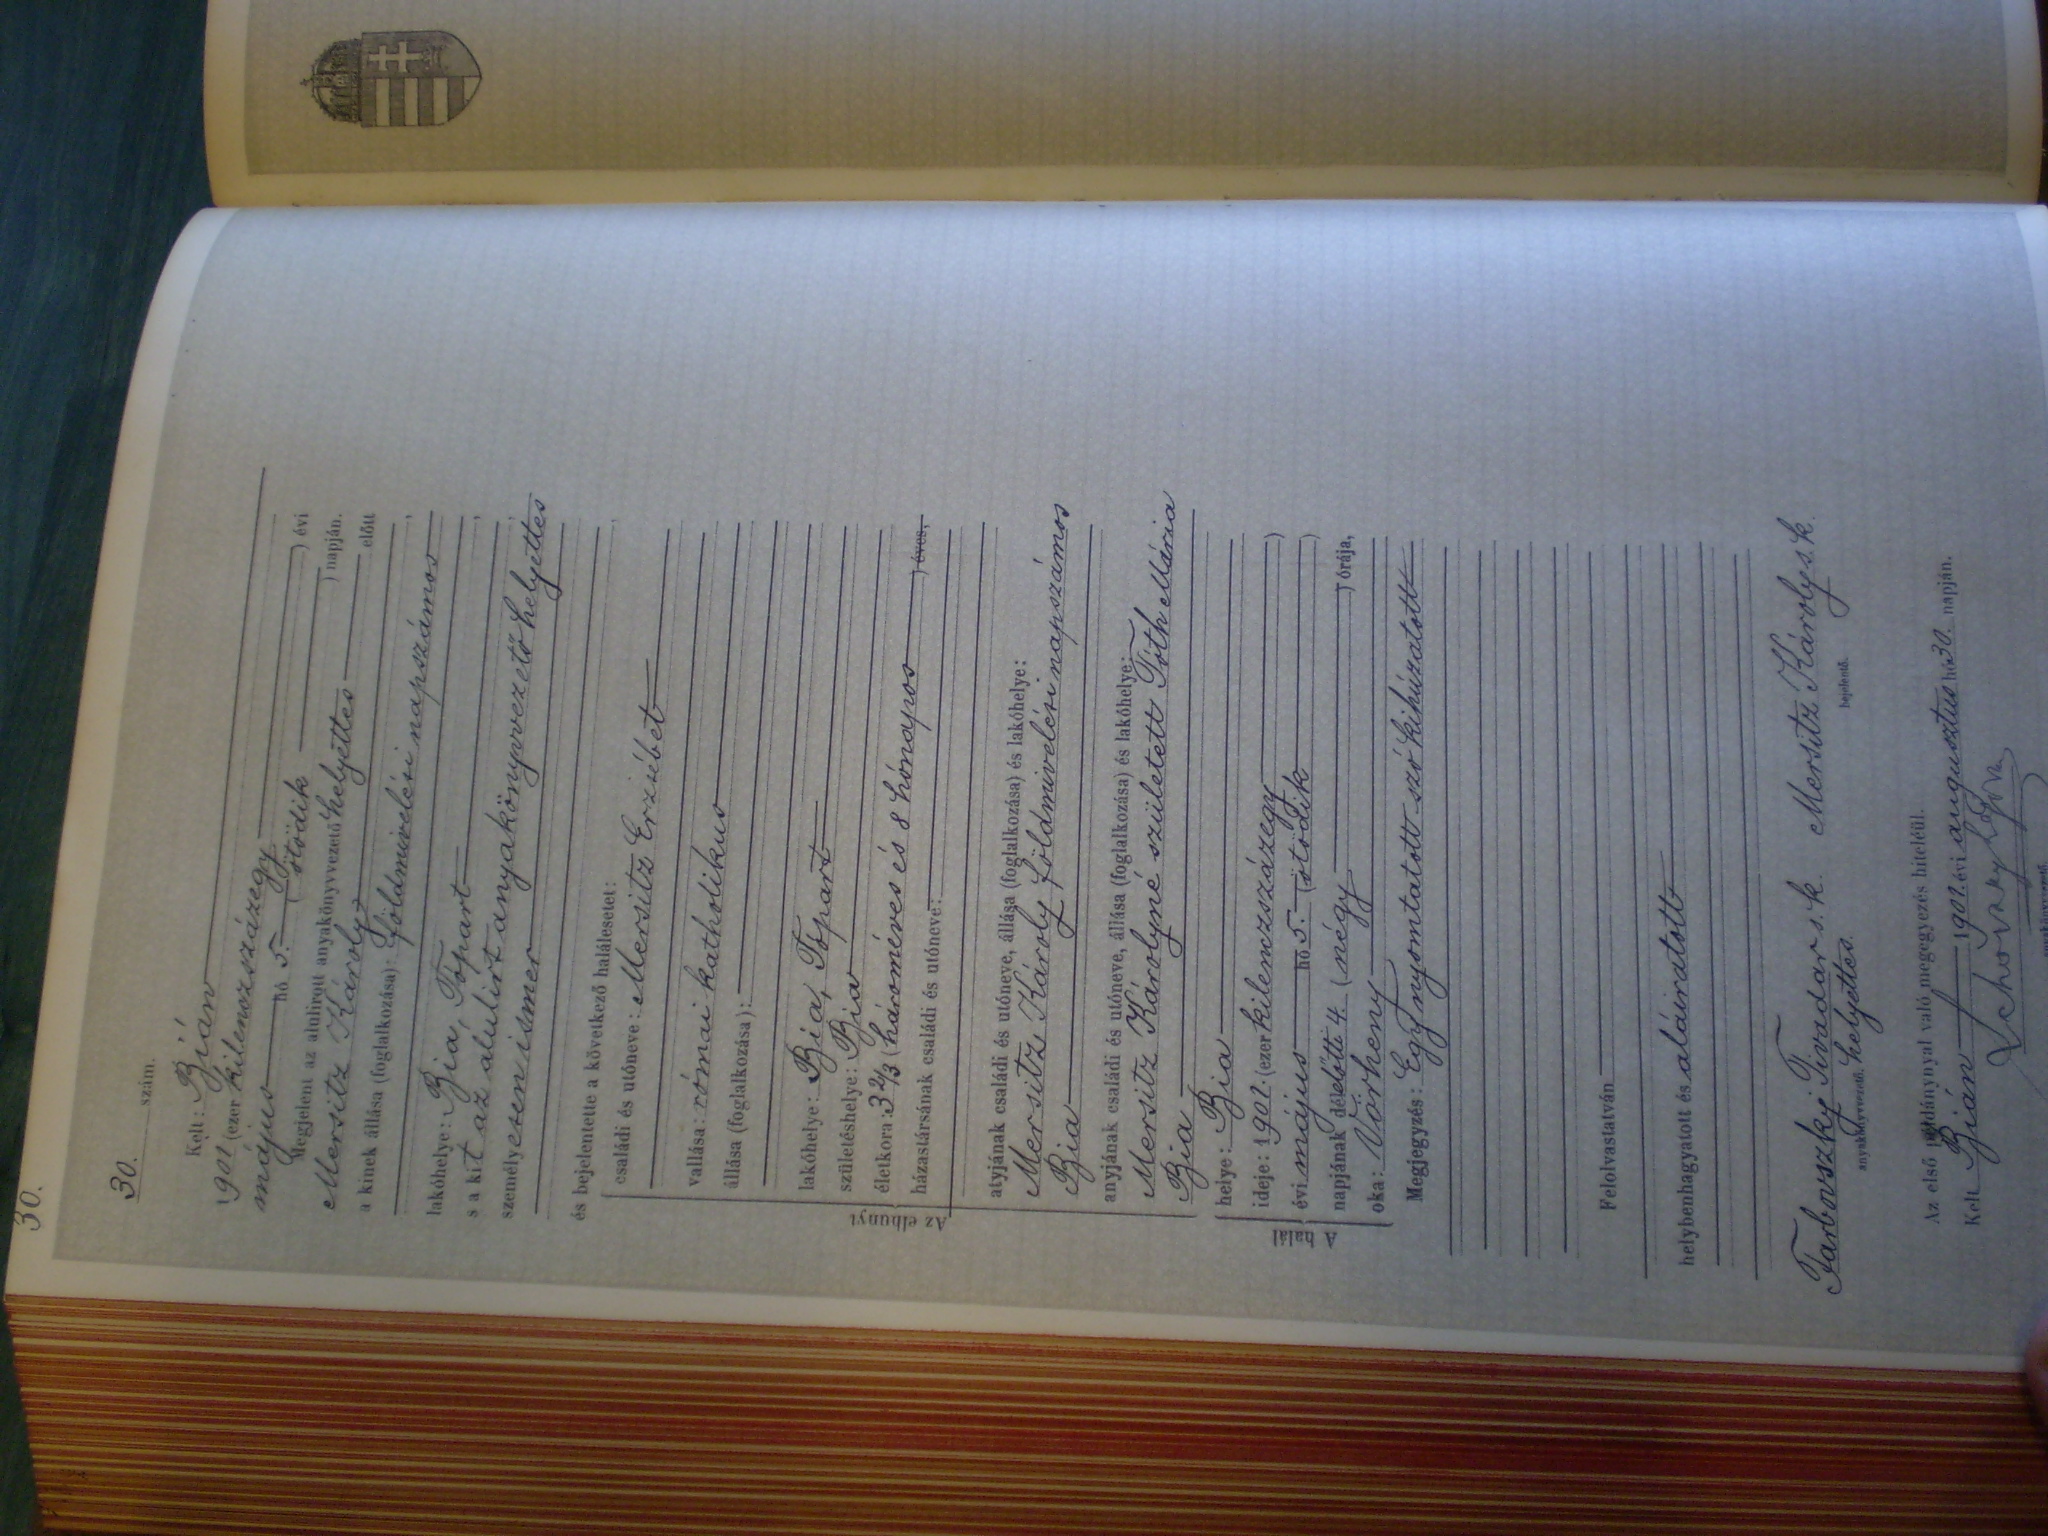 30.
30. szám.
Kelt: Bián
1901 (ezer kilenczszázegy) évi
május hó 5. (ötödik) napján.
Megjelent az alulirott anyakönyvvezető helyettes előtt
Mersitz Károly,
a kinek állása (foglalkozása): földmivelési napszámos,
lakóhelye: Bia, Tópart,
s a kit az alulirt anyakönyvvezető helyettes
személyesen ismer
és bejelentette a következő halálesetet:
Az elhunyt
családi és utóneve: Mersitz Erzsébet
vallása: római katholikus
állása (foglalkozása):
lakóhelye: Bia, Tópart
születéshelye: Bia
életkora: 3 2/3 (hároméves és 8 hónapos) éves,
házastársának családi és utóneve:
atyjának családi és utóneve, állása (foglalkozása) és lakóhelye:
Mersitz Károly földmivelési napszámos
Bia
anyjának családi és utóneve, állása (foglalkozása) és lakóhelye:
Mersitz Károlyné született Tóth Mária
Bia
A halál
helye: Bia
ideje: 1901. (ezer kilenczszázegy)
évi május hó 5. (ötödik)
napjának délelőtti 4. (négy) órája,
oka: Vörheny
Megjegyzés: Egy nyomtatott szó kihúzatott
Felolvastatván
helybenhagyatott és aláiratott
Tarbovszky Tivadar s. k. Mersitz Károly s. k.
anyakönyvvezető. helyettes. bejelentő.
Az első példánynyal való megegyezés hiteléül.
Kelt Bián 1901. évi augusztus hó 30. napján.